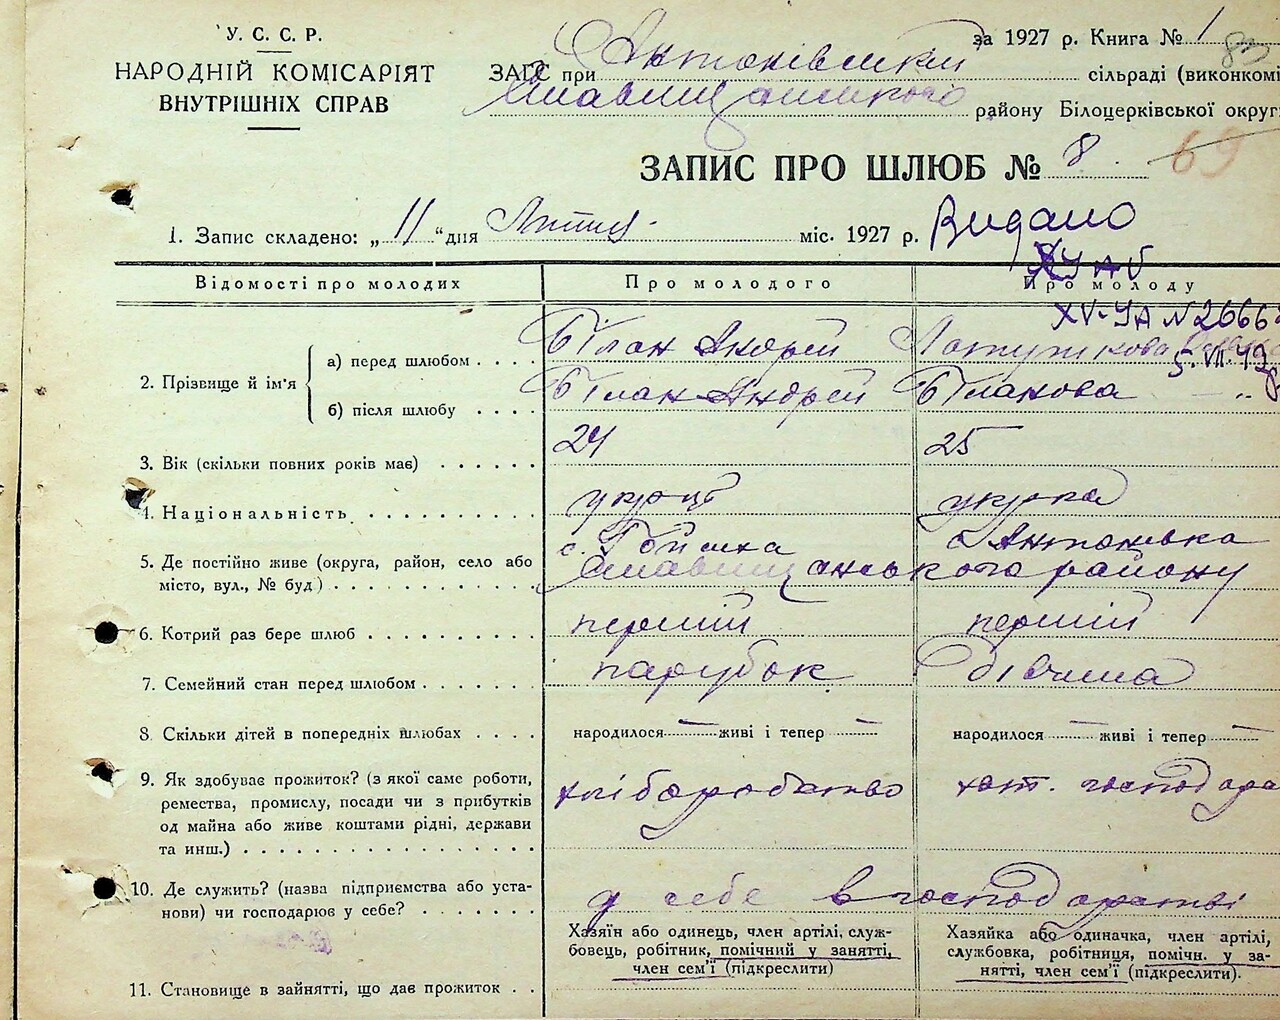 У. С. С. Р.
НАРОДНІЙ КОМІСАРІЯТ
ВНУТРІШНІХ СПРАВ
за 1927 р. Книга № 1
83
ЗАГС при Антонівській сільраді (виконкомі
Ставищанського району Білоцерківської округи
ЗАПИС ПРО ШЛЮБ № 8.
69
1. Запис складено: „ 11 “ дня Лютия міс. 1927 р.
Видано
Відомості про молодих
Про молодого
Про молоду
XV-УА N 26668
5. VII. 49
2. Прізвище й ім'я
а) перед шлюбом . . . . Білан Андрей
б) після шлюбу . . . . Білан Андрей Біланова
3. Вік (скільки повних років має) . . . . . . 24 25
4. Національність . . . . . . . . . . укр-ці укр-ка
5. Де постійно живе (округа, район, село або
місто, вул., № буд) . . . . . . . . . . .
с. Гойсиха с Антонівка
Ставищанського району
6. Котрий раз бере шлюб . . . . . . . . . перший перший
7. Семейний стан перед шлюбом . . . . . . . парубок дівчина
8. Скільки дітей в попередніх шлюбах . . . . народилося — живі і тепер — народилося — живі і тепер —
9. Як здобуває прожиток? (з якої саме роботи,
ремества, промислу, посади чи з прибутків
од майна або живе коштами рідні, держави
та инш.) . . . . . . . . . . . . . . . .
хліборобство хат. господарка
10. Де служить? (назва підприємства або уста-
нови) чи господарює у себе? . . . . . . .
у себе в господарстві
Хазяїн або одинець, член артілі, служ-
бовець, робітник, помічний у занятті,
член сем'ї (підкреслити)
Хазяйка або одиначка, член артілі,
службовка, робітниця, помічн. у за-
нятті, член сем'ї (підкреслити).
11. Становище в зайнятті, що дає прожиток . .